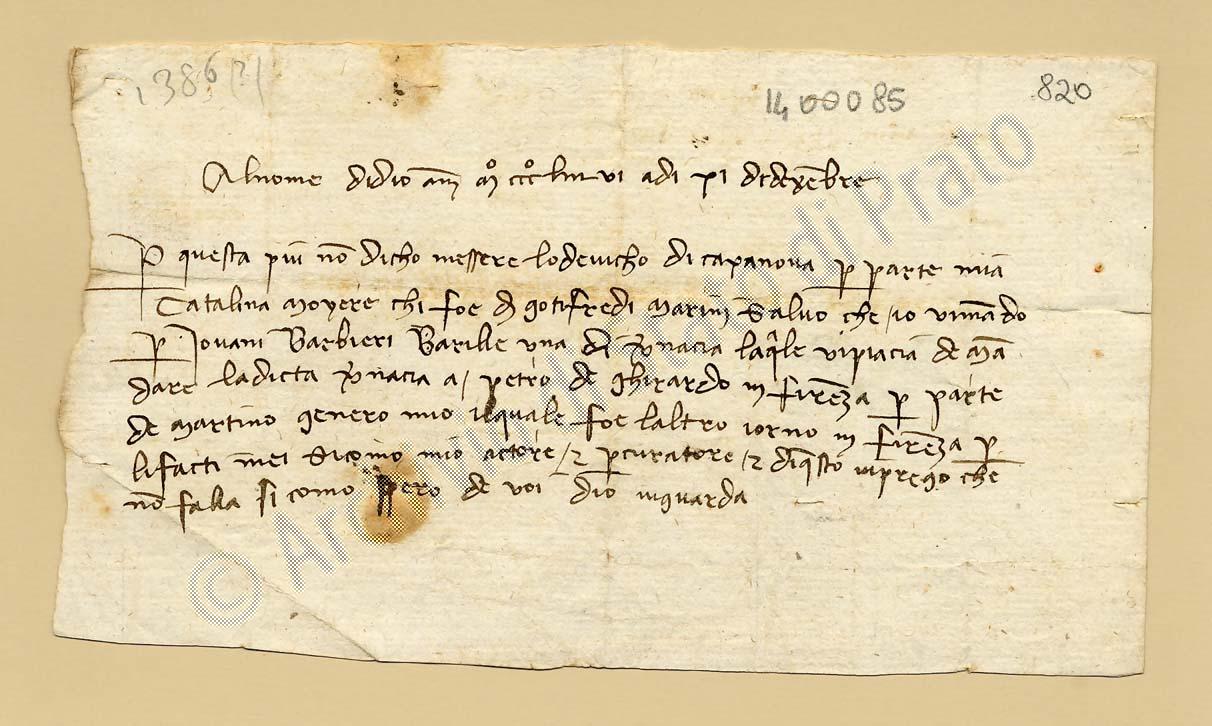 1386(?)
1400085
820
Al nome didio am̄ Mº cccº lxxxvi adi xi de dezēbre
P questa più nō dicho messere lodeuicho di capanoua p parte mia
Catalina moyere chi foe d gotifredi marini Saluo che / io uimādo
p Jouani Barbieri Barille una d vnacia laqle uipiacia de mā
dare ladicta vnacia a / petro de Ghirardo in firēza p parte
de martino genero mio ilquale foe laltro iorno in firēza p
li facti mei Sicomo mio actore / ⁊ pcuratore / ⁊ diqsto uiprego che
nō falla si como spero de uoi dio uiguarda
© Archivio di Stato di Prato